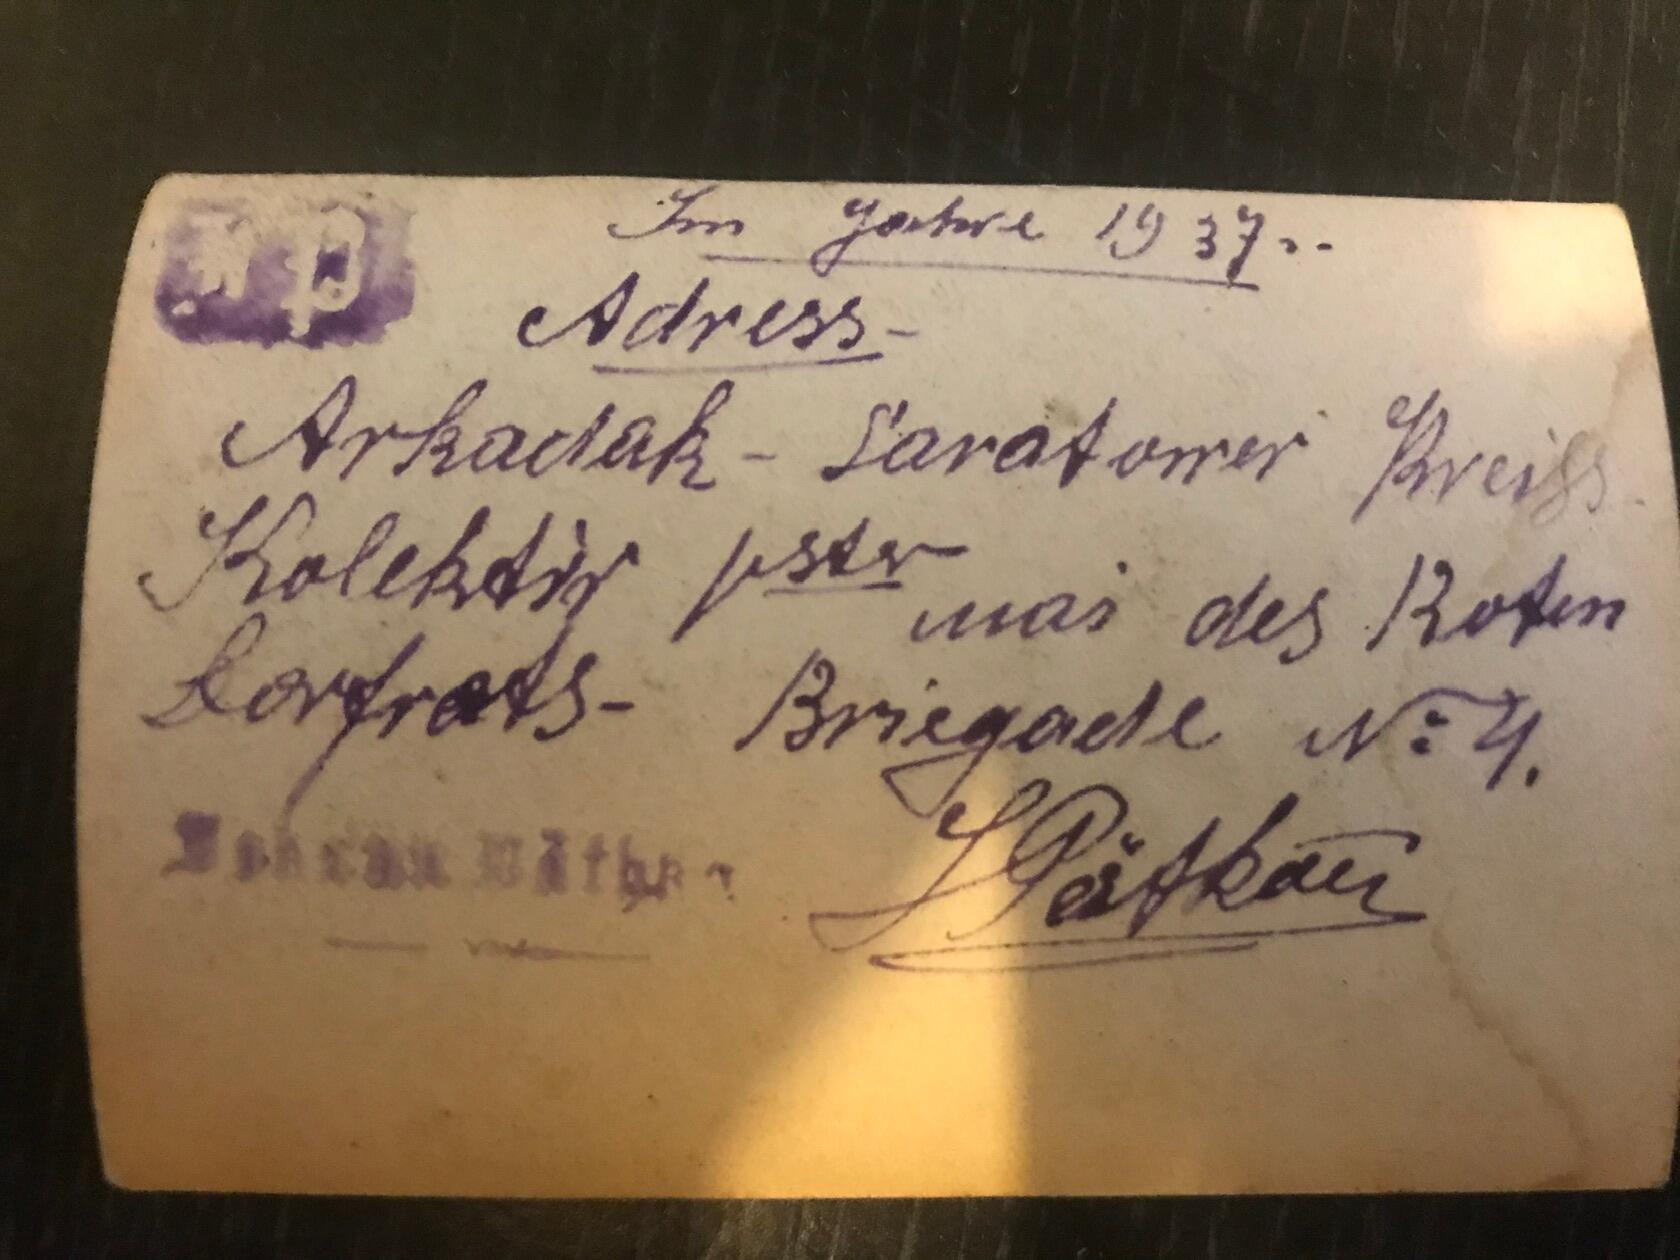 Im Jahre 1937..
Adress-
Arkadak - Saratower Kreiss
Kolektiv 1ster mai des Roten
Dorfrats- Briegade N: 4.
Pätkau